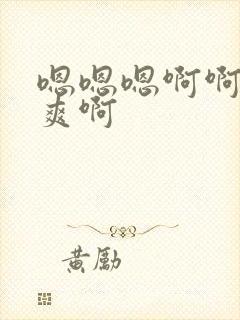 嗯嗯嗯啊啊
爽啊
黄勵